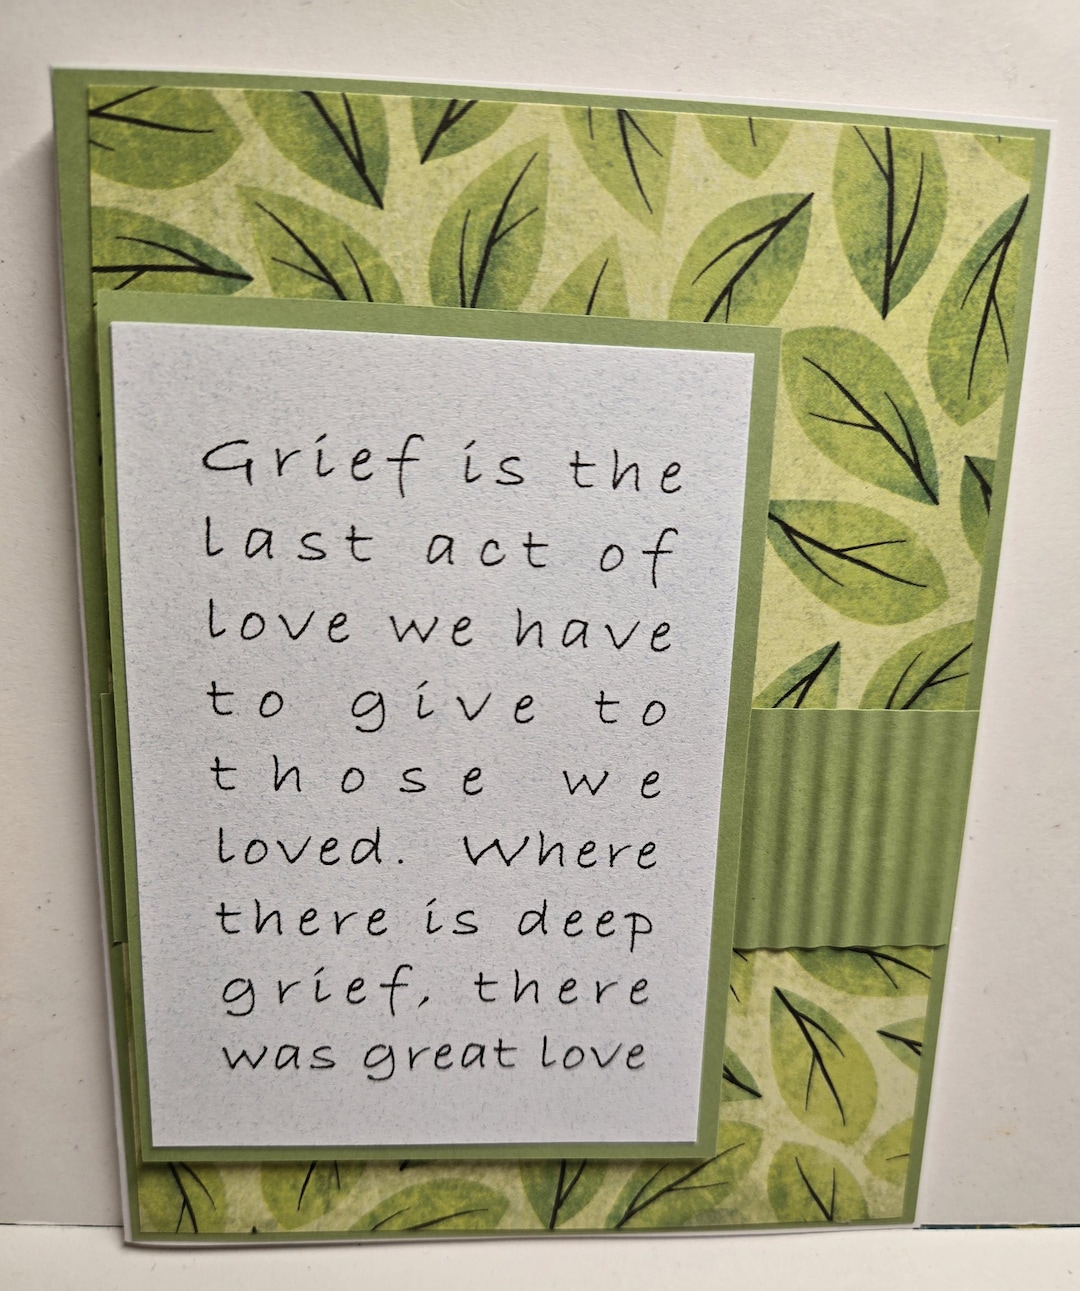 Grief is the
last act of
love we have
to give to
those we
loved. Where
there is deep
grief, there
was great love